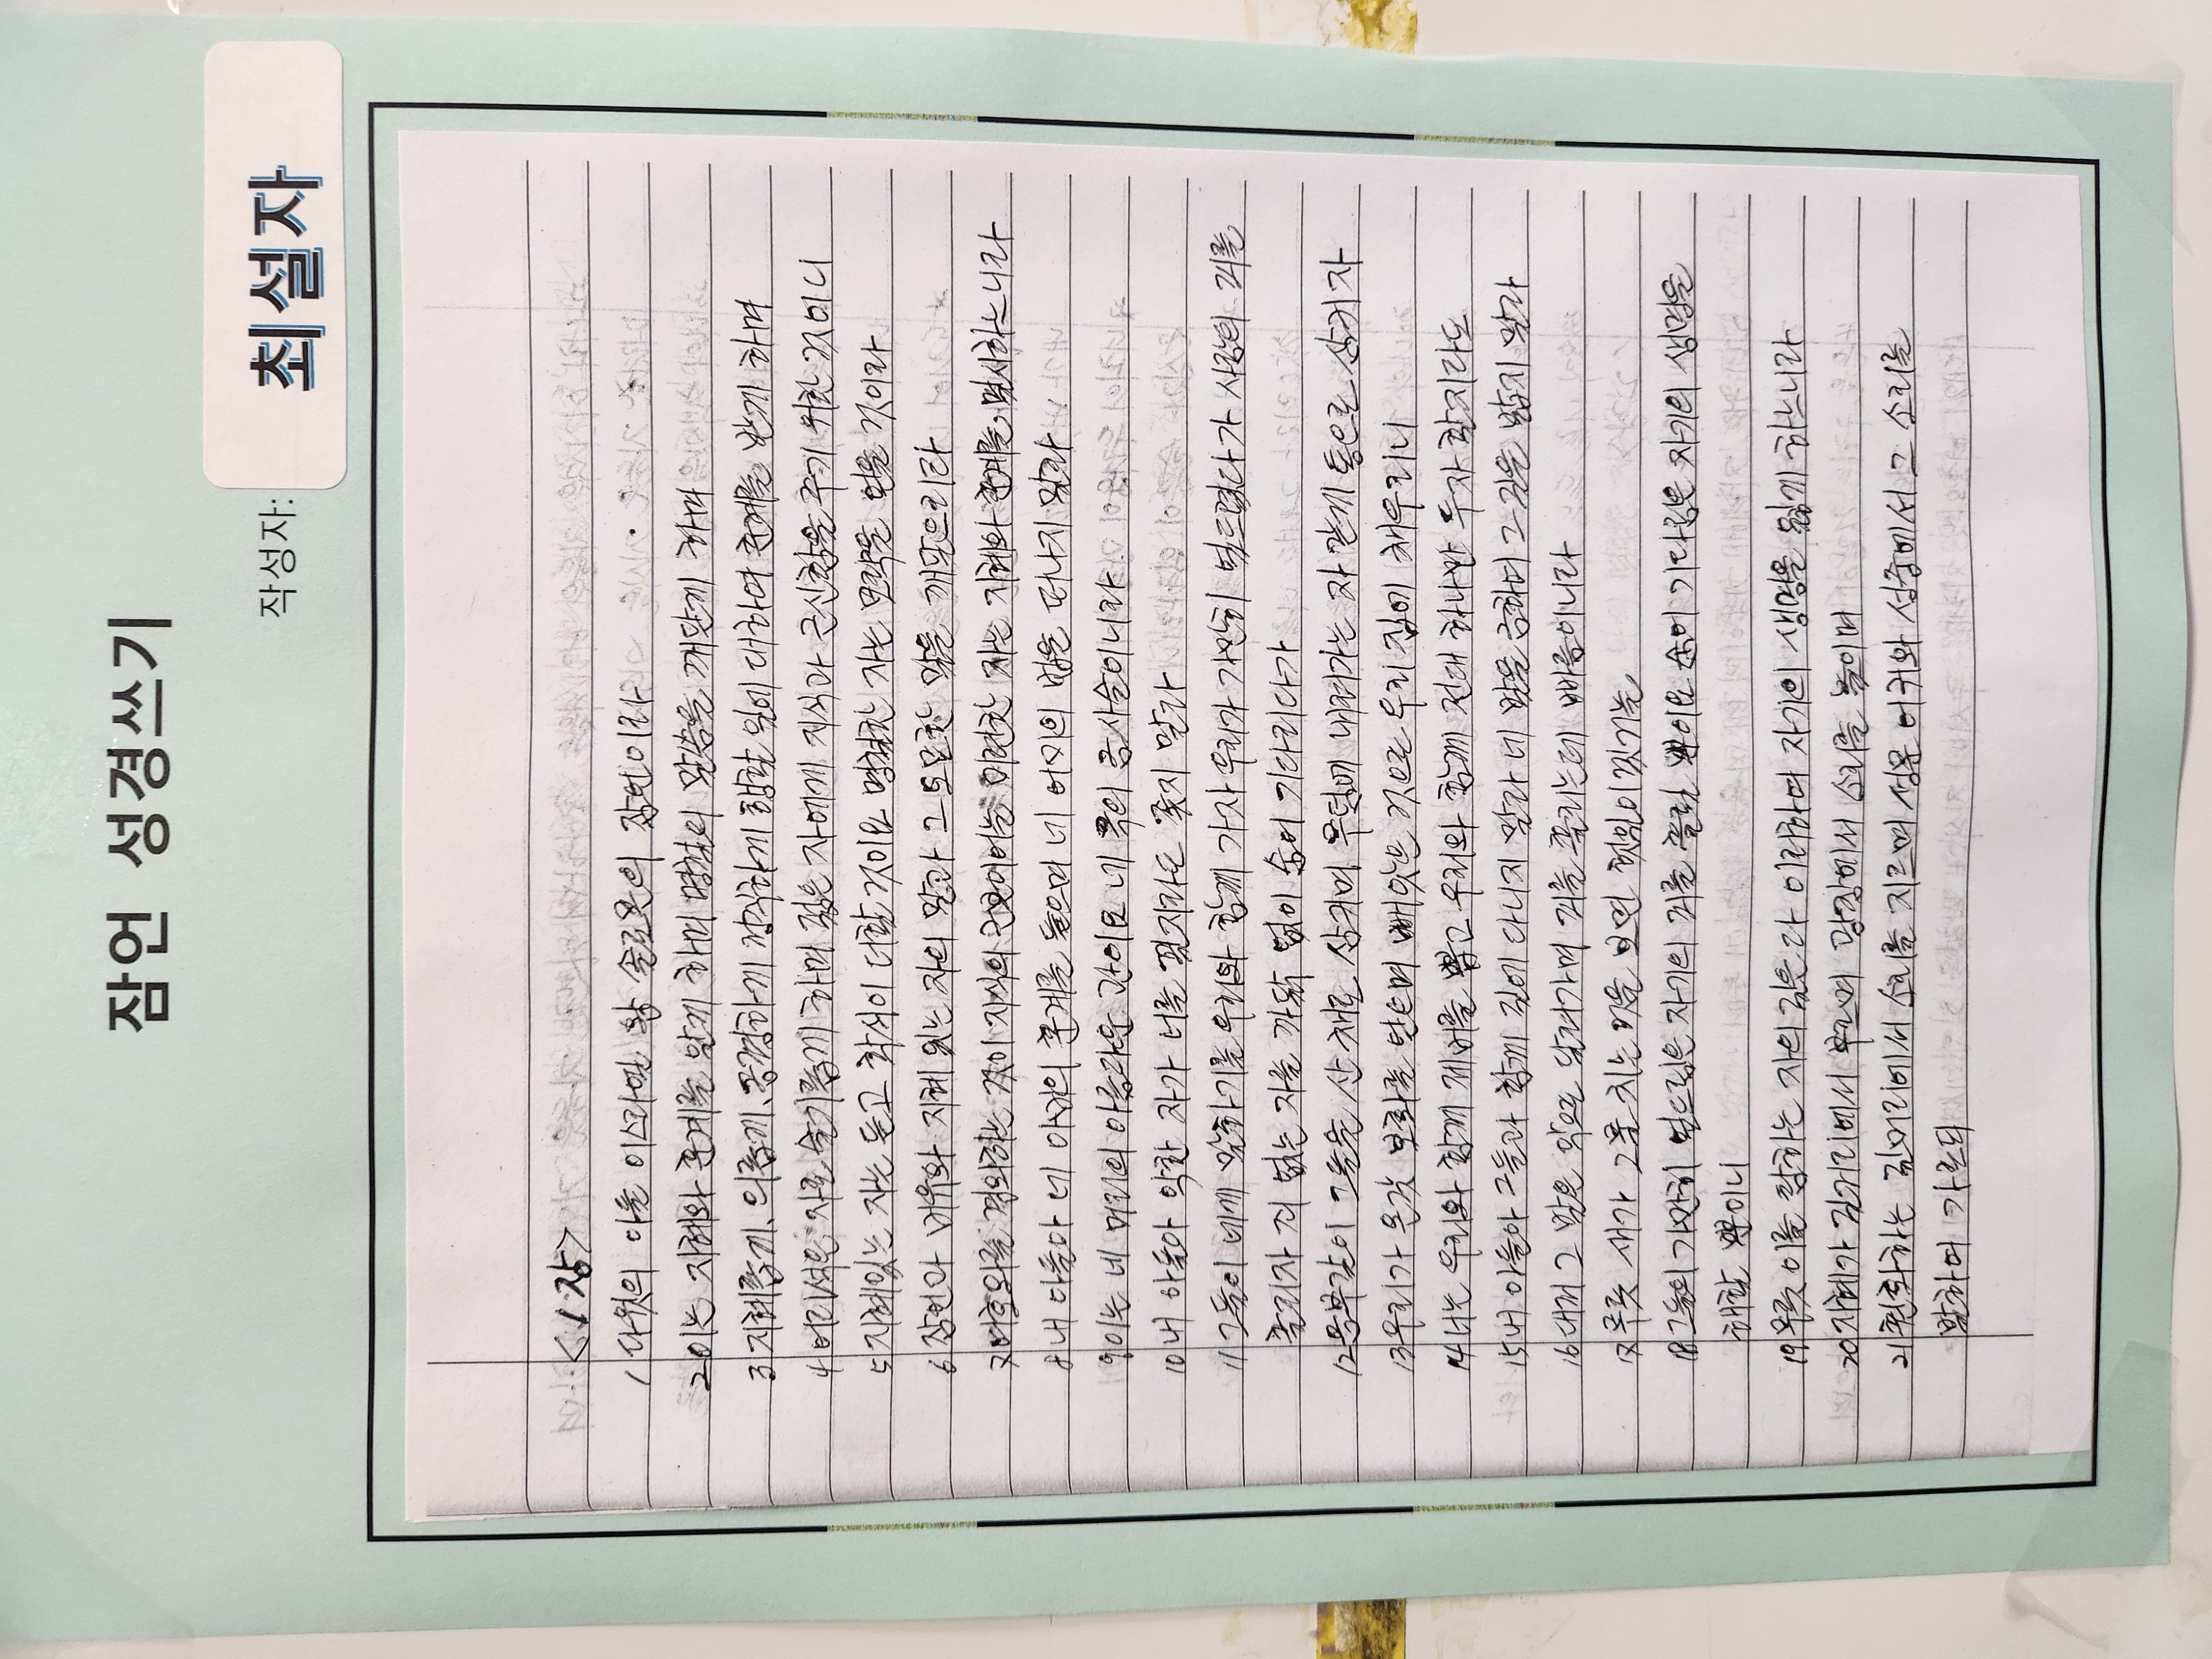 잠언 성경쓰기
작성자: 최설자
<1장>
1 다윗의 아들 이스라엘 왕 솔로몬의 잠언이라
2 이는 지혜와 훈계를 알게 하며 명철의 말씀을 깨닫게 하며
3 지혜롭게, 의롭게, 공평하게 정직하게 행할 일에 대하여 훈계를 받게 하며
4 어리석은 자로 슬기롭게 하며 젊은 자에게 지식과 근신함을 주기 위한 것이니
5 지혜있는 자는 듣고 학식이 더할 것이요 명철한 자는 모략을 얻을 것이라
6 잠언과 비유와 지혜 있는 자의 말과 그 오묘한 말을 깨달으리라
7 여호와를 경외하는 것이 지식의 근본이어늘 미련한 자는 지혜와 훈계를 멸시하느니라
8 내 아들아 네 아비의 훈계를 들으며 네 어미의 법을 떠나지 말라
9 이는 네 머리의 아름다운 관이요 네 목의 금사슬이니라
10 내 아들아 악한 자가 너를 꾈지라도 좇지 말라
11 그들이 네게 말하기를 우리와 함께 가자 우리가 가만히 엎드렸다가 사람의 피를
흘리자 죄 없는 자를 까닭 없이 숨어 기다리다가
12 음부같이 그들을 산 채로 삼키며 무덤에 내려가는 자 같게 통으로 삼키자
13 우리가 온갖 보화를 얻으며 빼앗은 것으로 우리 집에 채우리니
14 너는 우리와 함께 제비를 뽑고 우리와 함께 전대 하나만 두자 할지라도
15 내 아들아 그들과 함께 길에 다니지 말라 네 발을 금하여 그 길을 밟지 말라
16 대저 그 발은 악으로 달려가며 피를 흘리는데 빠름이니라
17 무릇 새가 그물 치는 것을 보면 헛일이겠거늘
18 그들이 가만히 엎드림은 자기의 피를 흘릴 뿐이요 숨어 기다림은 자기의 생명을
해할 뿐이니
19 무릇 이를 탐하는 자의 길은 다 이러하여 자기의 생명을 잃게 하느니라
20 지혜가 길거리에서 부르며 광장에서 소리를 높이며
21 훤화하는 길머리에서 소리를 지르며 성문 어귀와 성중에서 그 소리를
발하여 가로되